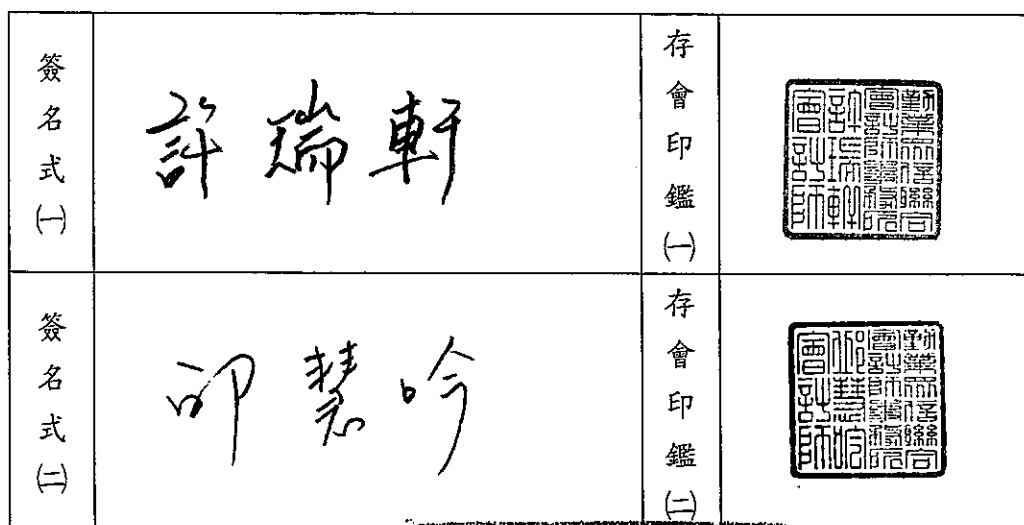 簽名式㈠
許瑞軒
存會印鑑㈠
勤業眾信聯合
會計師事務所
許瑞軒
會計師
簽名式㈡
邱慧吟
存會印鑑㈡
勤業眾信聯合
會計師事務所
邱慧吟
會計師